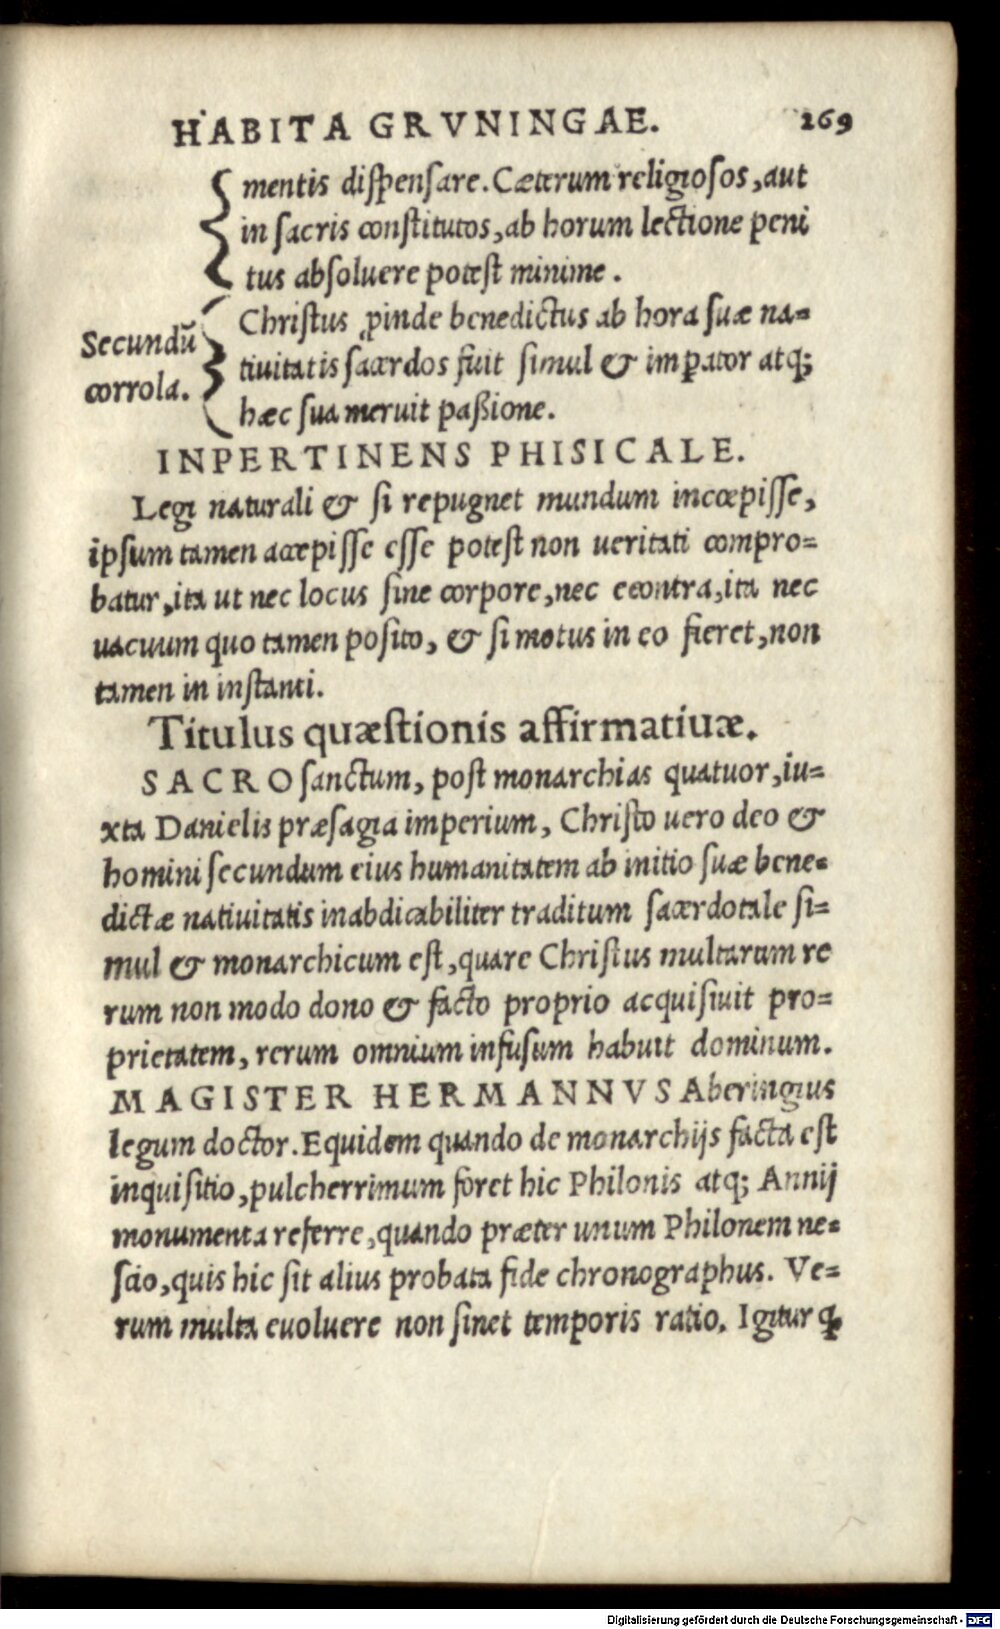 HABITA GRVNINGAE. 269
mentis diſpenſare. Cæterum religioſos, aut
in ſacris conſtitutos, ab horum lectione peni
tus abſoluere poteſt minime.
Chriſtus ꝓinde benedictus ab hora ſuæ na=
Secundũ
tiuitatis ſacerdos fuit ſimul & imꝑator atq;
corrola.
hæc ſua meruit paßione.
INPERTINENS PHISICALE.
Legi naturali & ſi repugnet mundum incœpiſſe,
ipſum tamen accepiſſe eſſe poteſt non ueritati compro=
batur, ita ut nec locus ſine corpore, nec econtra, ita nec
uacuum quo tamen poſito, & ſi motus in eo fieret, non
tamen in inſtanti.
Titulus quæſtionis affirmatiuæ.
SACROſanctum, poſt monarchias quatuor, iu=
xta Danielis præſagia imperium, Chriſto uero deo &
homini ſecundum eius humanitatem ab initio ſuæ bene=
dictæ natiuitatis inabdicabiliter traditum ſacerdotale ſi=
mul & monarchicum eſt, quare Chriſtus multarum re
rum non modo dono & facto proprio acquiſiuit pro=
prietatem, rerum omnium infuſum habuit dominum.
MAGISTER HERMANNVS Aberingius
legum doctor. Equidem quando de monarchijs facta eſt
inquiſitio, pulcherrimum foret hic Philonis atq; Annij
monumenta referre, quando præter unum Philonem ne=
ſcio, quis hic ſit alius probata fide chronographus. Ve=
rum multa euoluere non ſinet temporis ratio. Igitur ꝙ
Digitalisierung gefördert durch die Deutsche Forschungsgemeinschaft - DFG